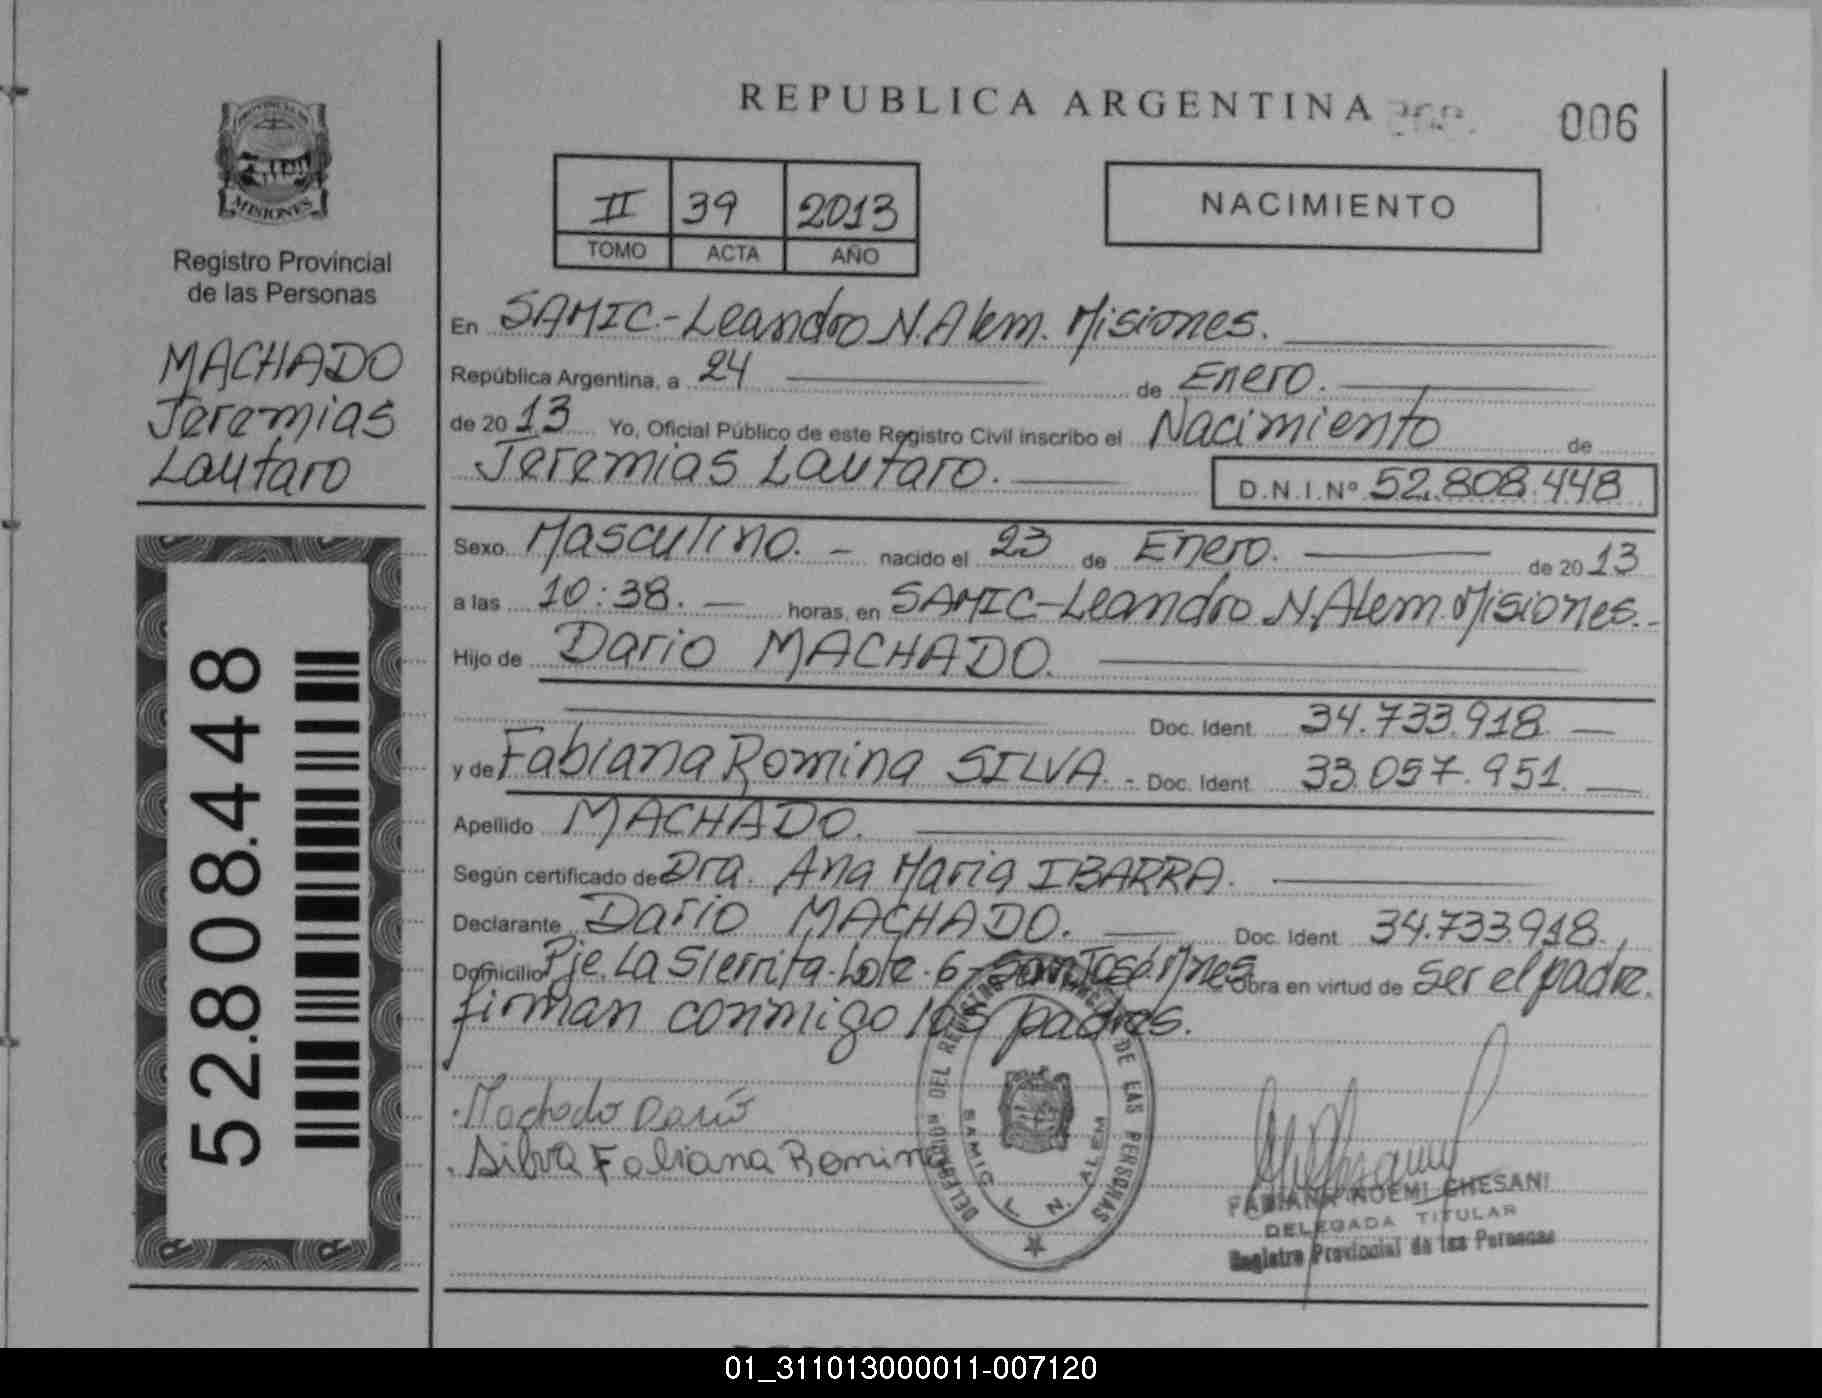 REPUBLICA ARGENTINA
006
PROVINCIA DE
MISIONES
Registro Provincial
de las Personas
MACHADO
Jeremias
Lautaro
52.808.448
II 39 2013
TOMO ACTA AÑO
NACIMIENTO
En SAMIC.-Leandro N.Alem. Misiones.
República Argentina, a 24 de Enero.
de 2013 Yo, Oficial Público de este Registro Civil inscribo el Nacimiento de
Jeremias Lautaro.
D.N.I.Nº 52.808.448
Sexo Masculino. - nacido el 23 de Enero. de 2013
a las 10:38. - horas, en SAMIC-Leandro N.Alem.Misiones.-
Hijo de Dario MACHADO.
Doc. Ident. 34.733.918. -
y de Fabiana Romina SILVA. - Doc. Ident. 33.057.951. -
Apellido MACHADO.
Según certificado de Dra. Ana Maria IBARRA.
Declarante Dario MACHADO. - Doc. Ident. 34.733.918.,
Domicilio Pje. La Sierrita-Lote.6-San José.Mnes Obra en virtud de ser el padre.
firman conmigo los padres.
Machado Darío
Silva Fabiana Romina
DELEGACION DEL REGISTRO PROVINCIAL DE LAS PERSONAS
SAMIC L. N. ALEM
FABIANA NOEMI CHESANI
DELEGADA TITULAR
Registro Provincial de las Personas
01_311013000011-007120